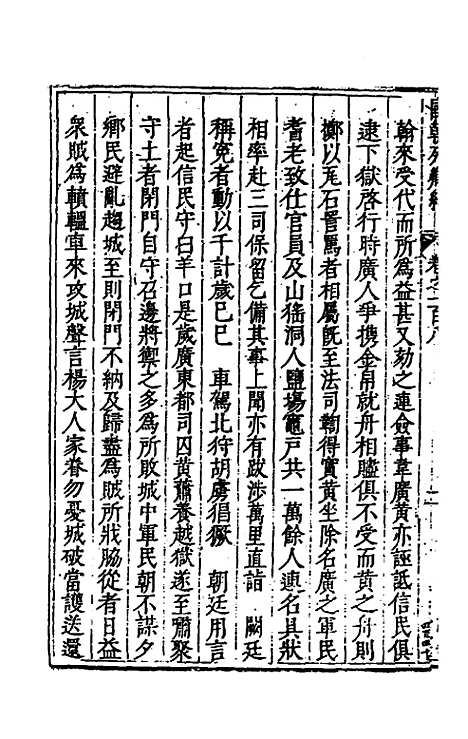 翰來受代而所爲益甚又劾之連僉事韋廣黃亦誣詆信民俱
逮下獄啓行時廣人爭携金帛就舟相贐俱不受而黃之舟則
擲以瓦石詈罵者相屬旣至法司鞫得實黃坐除名廣之軍民
耆老致仕官員及山猺洞人鹽塲竈戶共一萬餘人連名具狀
相率赴三司保留乞備其事上聞亦有跋涉萬里直詣 闕廷
稱寃者動以千計歲己巳 車駕北狩胡虜猖獗 朝廷用言
者起信民守白羊口是歲廣東都司囚黃蕭養越獄遂至嘯聚
守土者閉門自守召邊將禦之多爲所敗城中軍民朝不謀夕
鄉民避亂趨城至則閉門不納及歸盡爲賊所戕脇從者日益
衆賊爲轒轀車來攻城聲言楊大人家眷勿憂城破當護送還
國朝列卿紀 卷之一百八